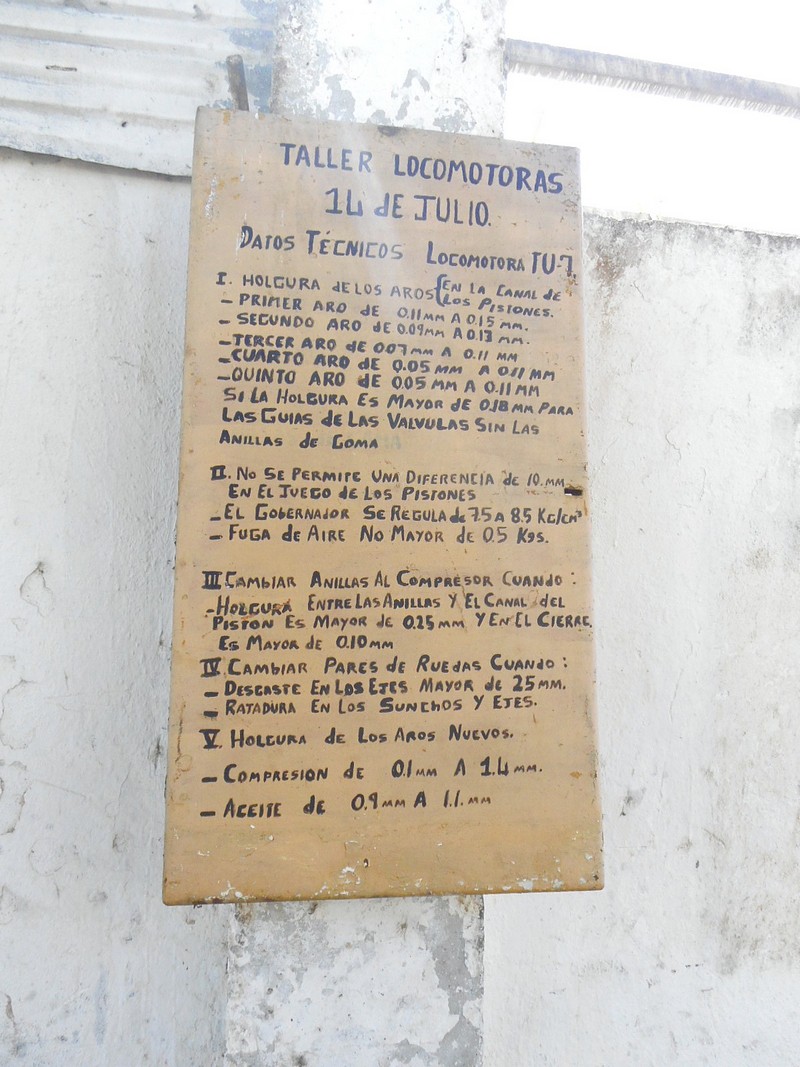 TALLER LOCOMOTORAS
14 de JULIO.
DATOS TÉCNICOS LOCOMOTORA TU-7.
I. HOLGURA de LOS AROS { EN LA CANAL DE
LOS PISTONES.
- PRIMER ARO DE 0.11 MM A 0.15 MM.
- SEGUNDO ARO DE 0.09 MM A 0.13 MM.
- TERCER ARO de 007 MM A 0.11 MM
- CUARTO ARO DE 0.05 MM A 0.11 MM
- QUINTO ARO DE 0.05 MM A 0.11 MM
SI LA HOLGURA ES MAYOR DE 0.18 MM PARA
LAS GUIAS de LAS VALVULAS SIN LAS
ANILLAS de GOMA
II. NO SE PERMITE UNA DIFERENCIA de 10. MM
EN EL JUEGO de LOS PISTONES
- EL GOBERNADOR SE REGULA de 7.5 A 8.5 KG/CM³
- FUGA de AIRE NO MAYOR de 0.5 KGS.
III. CAMBIAR ANILLAS AL COMPRESOR CUANDO:
- HOLGURA ENTRE LAS ANILLAS Y EL CANAL del
PISTON ES MAYOR de 0.25 MM Y EN EL CIERRE.
ES MAYOR de 0.10 MM
IV. CAMBIAR PARES DE RUEDAS CUANDO:
- DESGASTE EN LOS EJES MAYOR de 25 MM.
- RATADURA EN LOS SUNCHOS Y EJES.
V. HOLGURA de LOS AROS NUEVOS.
- COMPRESION de 0.1 MM A 1.4 MM.
- ACEITE de 0.9 MM A 1.1. MM